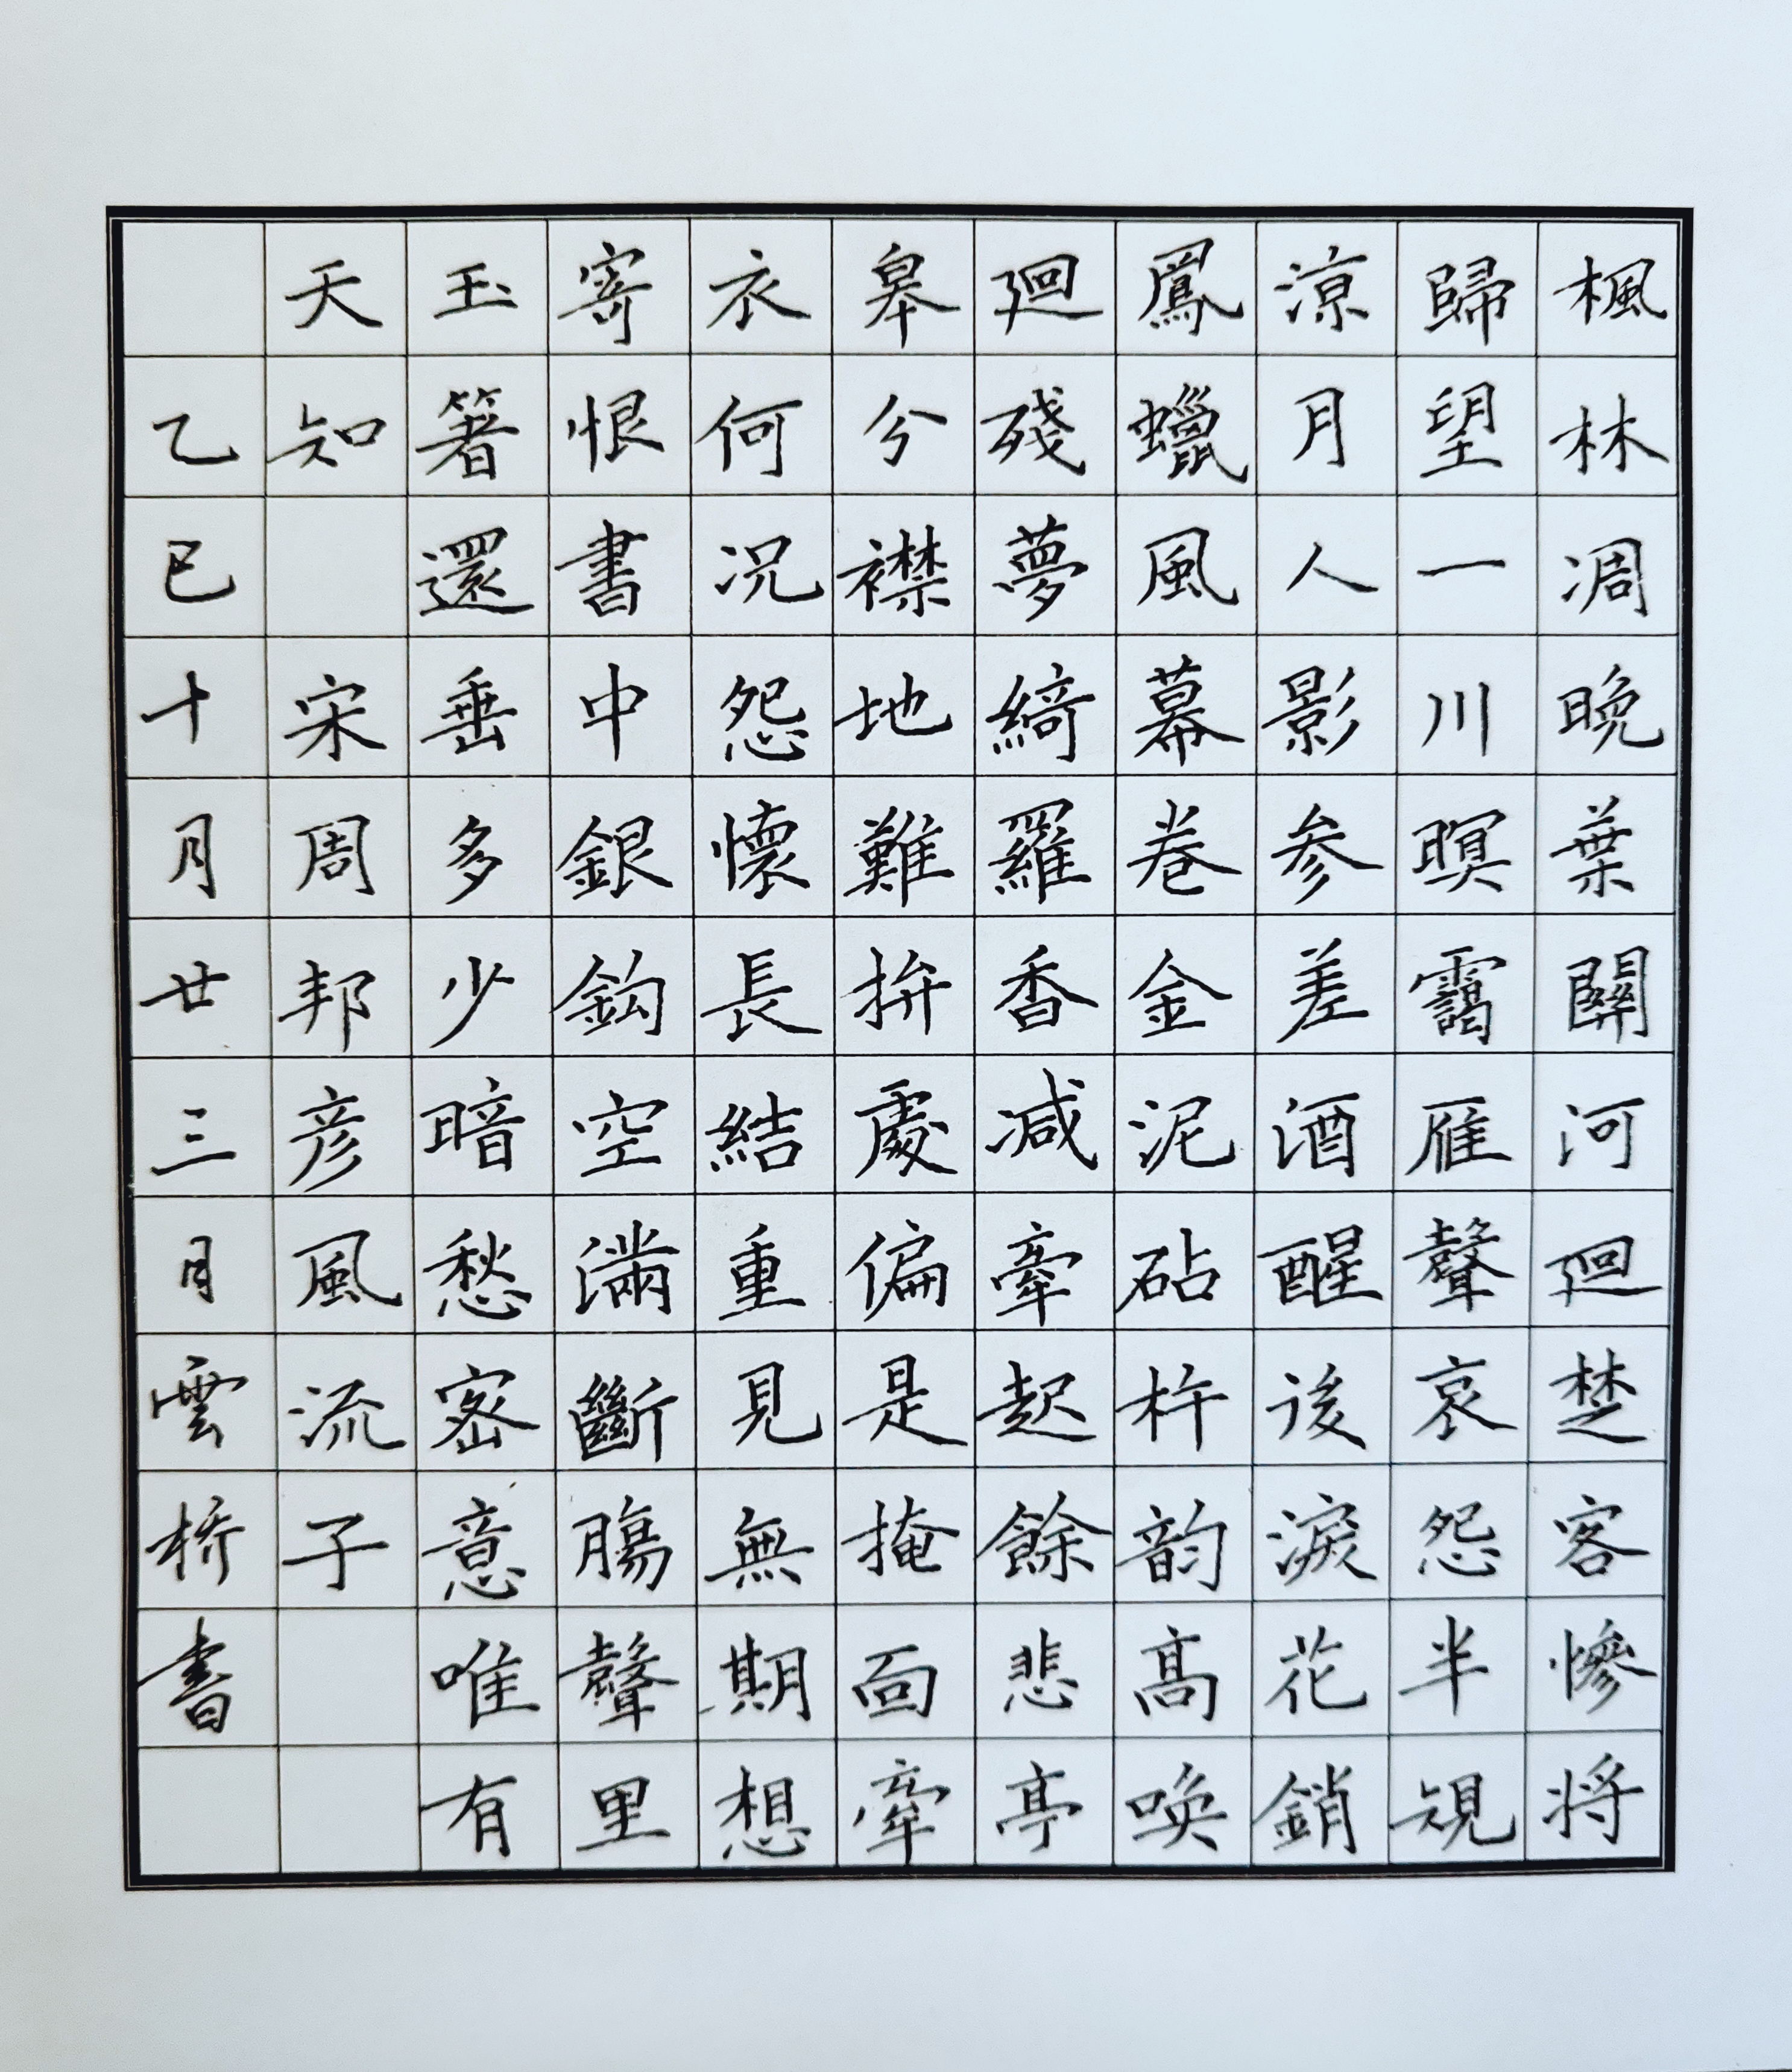 楓林凋晚葉關河迥楚客慘將
歸望一川暝靄雁聲哀怨半規
涼月人影參差酒醒後淚花銷
鳳蠟風幕卷金泥砧杵韵高喚
迴殘夢綺羅香減牽起餘悲亭
皋分襟地難拚處偏是掩面牽
衣何況怨懷長結重見無期想
寄恨書中銀鈎空滿斷腸聲里
玉箸還垂多少暗愁密意唯有
天知 宋周邦彦風流子
乙巳十月廿三日雲橋書